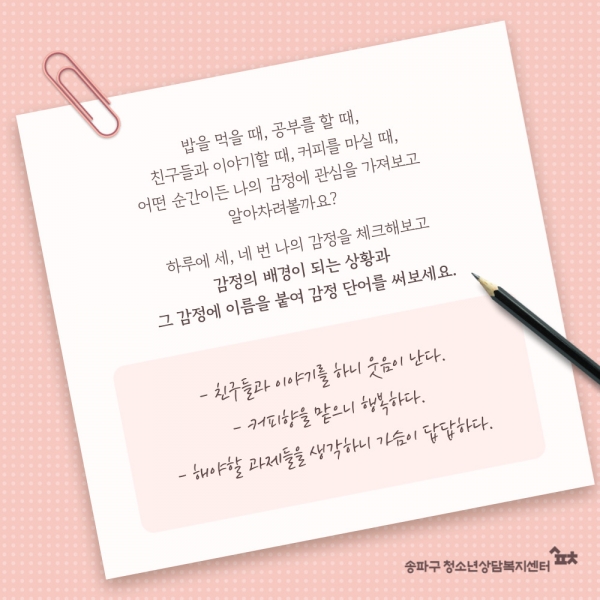 밥을 먹을 때, 공부를 할 때,
친구들과 이야기할 때, 커피를 마실 때,
어떤 순간이든 나의 감정에 관심을 가져보고
알아차려볼까요?
하루에 세, 네 번 나의 감정을 체크해보고
감정의 배경이 되는 상황과
그 감정에 이름을 붙여 감정 단어를 써보세요.
- 친구들과 이야기를 하니 웃음이 난다.
- 커피향을 맡으니 행복하다.
- 해야할 과제들을 생각하니 가슴이 답답하다.
송파구 청소년상담복지센터